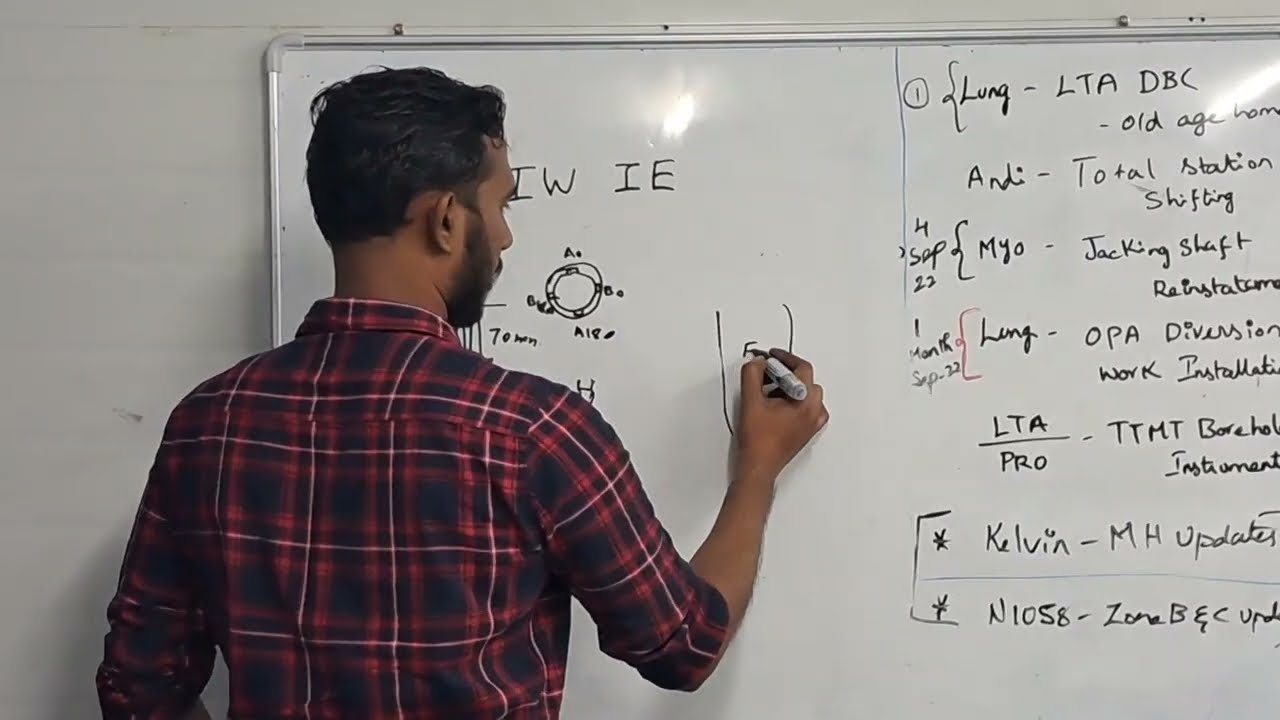 IW IE
A0
B0
A180
70mm
H
F
① { Lung - LTA DBC
- old age hom
Andi - Total station
Shifting
4
Sep
22
{ Myo - Jacking Shaft
Reinstateme
1
Month
Sep-22
{ Lung - OPA Diversion
work Installati
LTA
PRO
- TTMT Borehol
Instrument
* Kelvin - MH updates
* N1058 - Zone B & C upd